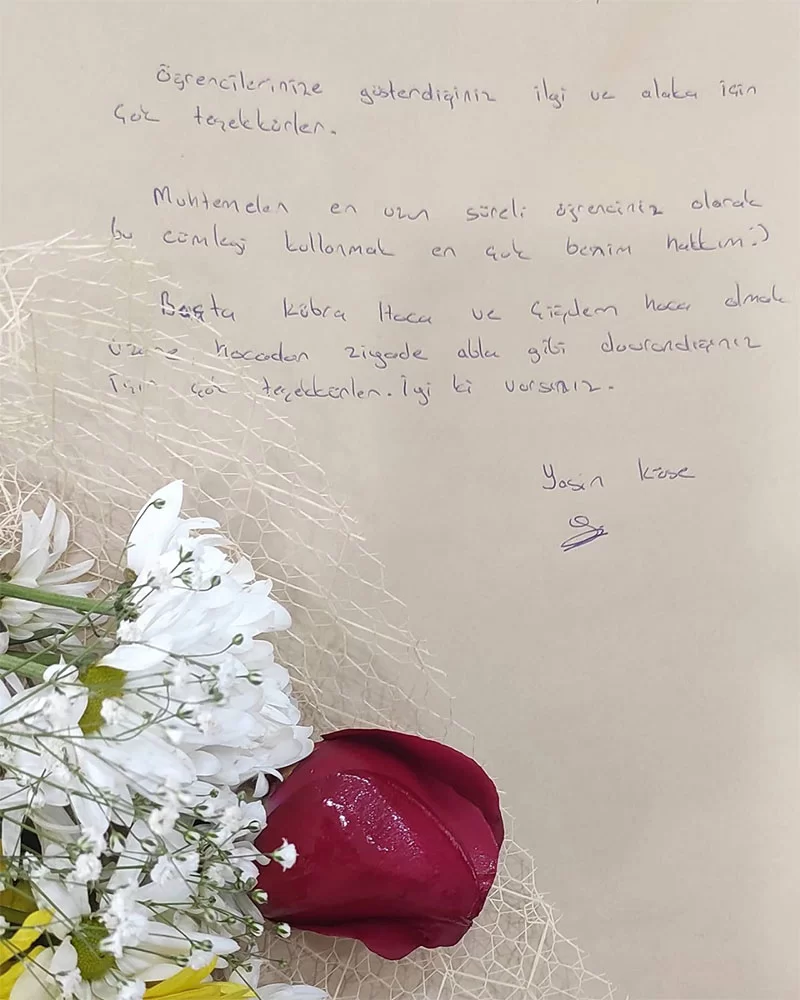 Öğrencilerinize gösterdiğiniz ilgi ve alaka için
çok teşekkürler.
Muhtemelen en uzun süreli öğrenciniz olarak
bu cümleyi kullanmak en çok benim hakkım :)
Başta Kübra Hoca ve Çiğdem hoca olmak
üzere hocadan ziyade abla gibi davrandığınız
için çok teşekkürler. İyi ki varsınız.
Yasin Köse